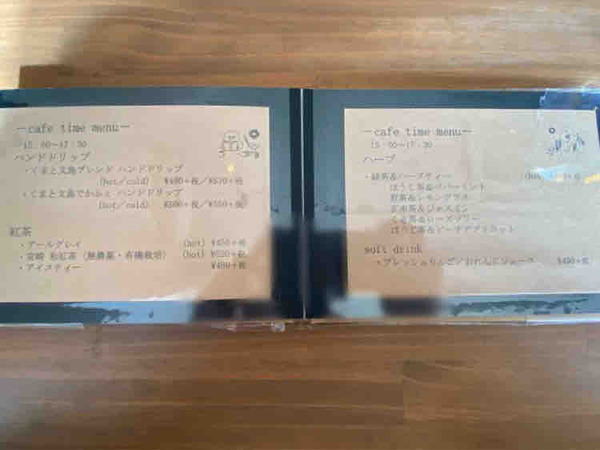 －cafe time menu－
15：00〜17：30
ハンドドリップ
・くまと文鳥ブレンド ハンドドリップ
(hot/cold) ¥480＋税/¥530＋税
・くまと文鳥でかふぇ ハンドドリップ
(hot/cold) ¥500＋税/¥550＋税
紅茶
・アールグレイ (hot) ¥450＋税
・宮崎 和紅茶（無農薬・有機栽培） (hot) ¥520＋税
・アイスティー ¥480＋税
－cafe time menu－
15：00〜17：30
ハーブ
・緑茶&ハーブティー
ほうじ茶&ペパーミント
煎茶&レモングラス
玄米茶&ジャスミン
ほうじ茶&ピーチアプリコット
soft drink
・フレッシュりんご/おれんじジュース ¥490＋税